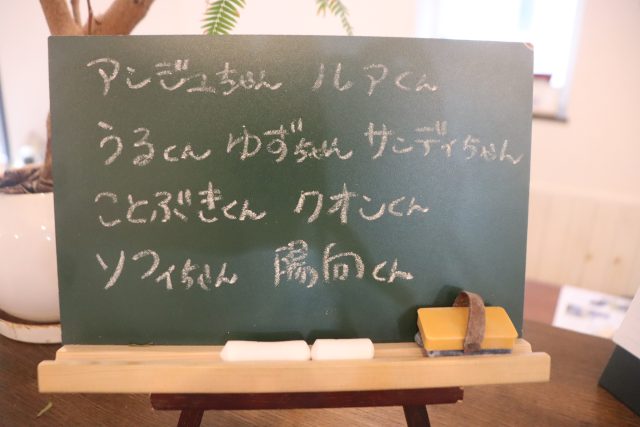 アンジュちゃん ルアくん
うるくん ゆずちゃん サンディちゃん
ことぶきくん クオンくん
ソフィちゃん 陽向くん